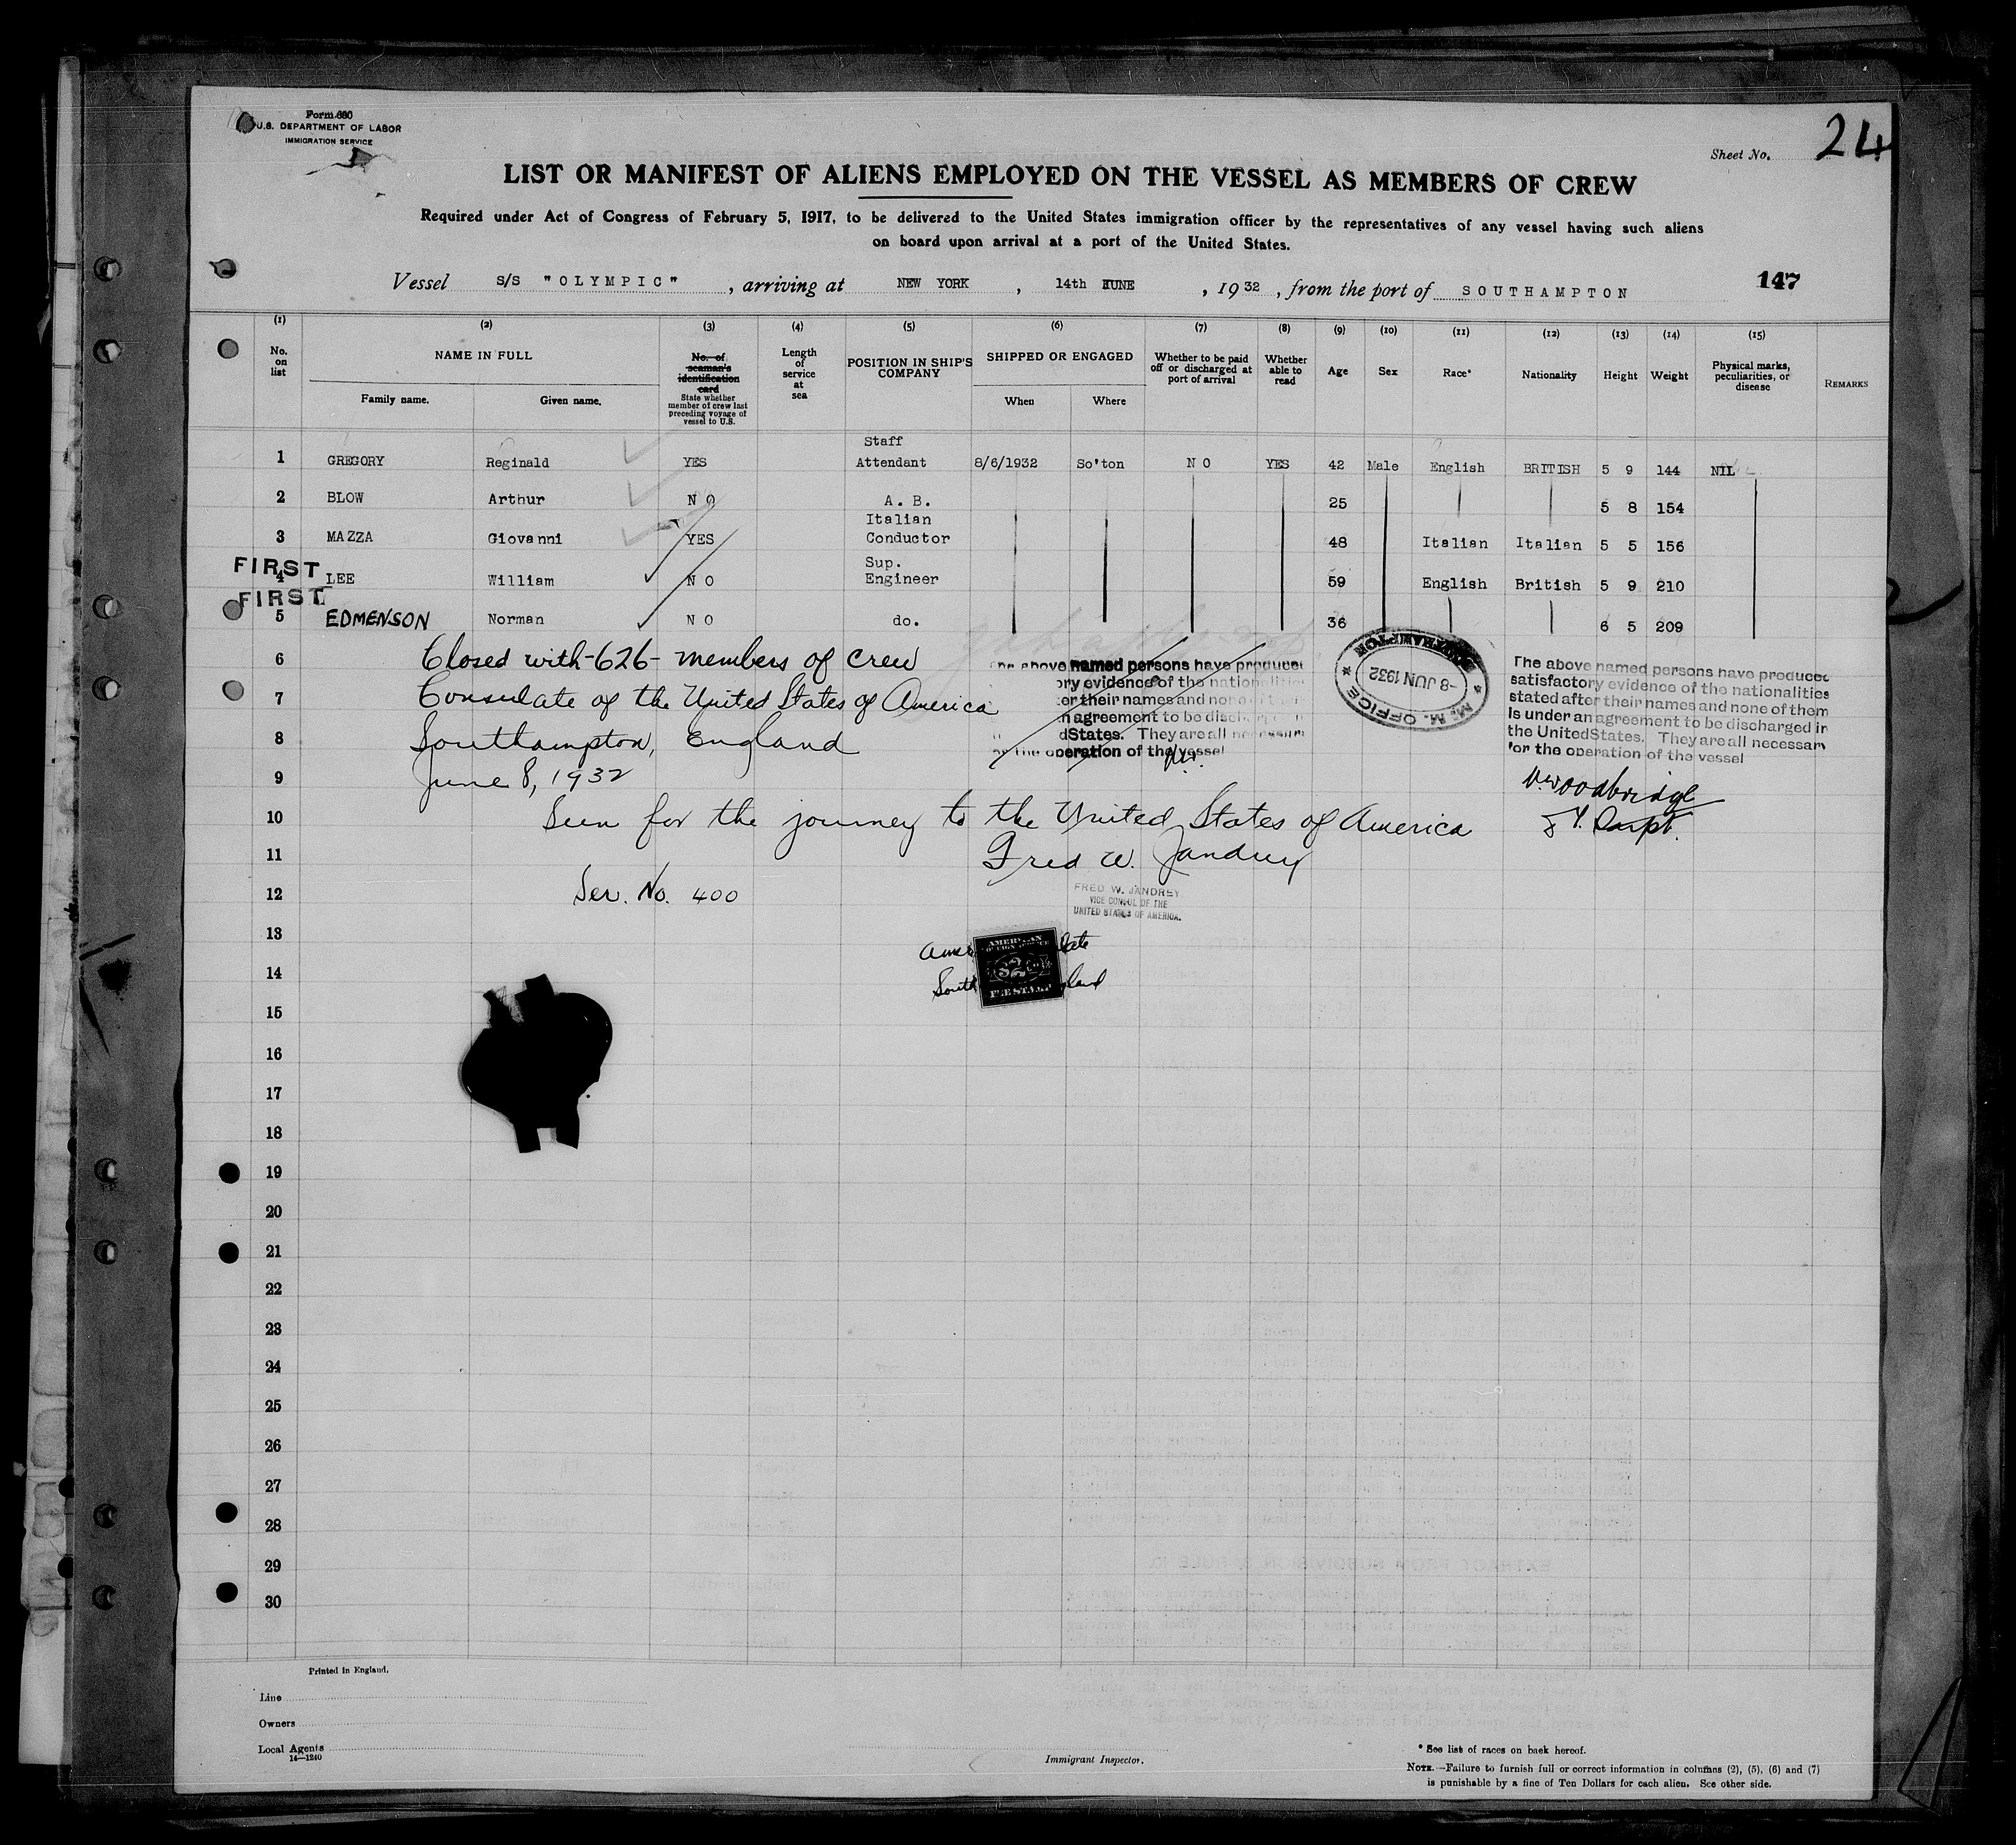 Form 680
U.S. DEPARTMENT OF LABOR
IMMIGRATION SERVICE
Sheet No. 24
LIST OR MANIFEST OF ALIENS EMPLOYED ON THE VESSEL AS MEMBERS OF CREW
Required under Act of Congress of February 5, 1917, to be delivered to the United States immigration officer by the representatives of any vessel having such aliens
on board upon arrival at a port of the United States.
Vessel S/S "OLYMPIC", arriving at NEW YORK, 14th JUNE, 1932, from the port of SOUTHAMPTON 147
(1) (2) (3) (4) (5) (6) (7) (8) (9) (10) (11) (12) (13) (14) (15)
No. on list NAME IN FULL Family name. Given name. No. of seaman's identification card State whether member of crew last preceding voyage of vessel to U.S. Length of service at sea POSITION IN SHIP'S COMPANY SHIPPED OR ENGAGED When Where Whether to be paid off or discharged at port of arrival Whether able to read Age Sex Race* Nationality Height Weight Physical marks, peculiarities, or disease REMARKS
1 GREGORY Reginald YES Staff Attendant 8/6/1932 So'ton NO YES 42 Male English BRITISH 5 9 144 NIL
2 BLOW Arthur NO A. B. 25 5 8 154
3 MAZZA Giovanni YES Italian Conductor 48 Italian Italian 5 5 156
FIRST
4 LEE William NO Sup. Engineer 59 English British 5 9 210
FIRST
5 EDMENSON Norman NO do. 36 6 5 209
6 Closed with -626- members of crew
7 Consulate of the United States of America
8 Southampton, England
9 June 8, 1932
10 Seen for the journey to the United States of America
11 Fred W. Jandrey
12 Ser. No. 400
FRED W. JANDREY
VICE CONSUL OF THE
UNITED STATES OF AMERICA.
The above named persons have produced
ory evidence of the nationalities
er their names and none of
n agreement to be discharged in
dStates. They are all necessary
or the operation of the vessel
M. M. OFFICE
-8 JUN 1932
SOUTHAMPTON
The above named persons have produced
satisfactory evidence of the nationalities
stated after their names and none of them
is under an agreement to be discharged in
the UnitedStates. They are all necessary
for the operation of the vessel
Woodbridge
13
14
AMERICAN
FOREIGN SERVICE
FEE STAMP
15
16
17
18
19
20
21
22
23
24
25
26
27
28
29
30
Printed in England.
Line
Owners
Local Agents
14—1240
Immigrant Inspector.
* See list of races on back hereof.
NOTE.—Failure to furnish full or correct information in columns (2), (5), (6) and (7)
is punishable by a fine of Ten Dollars for each alien. See other side.